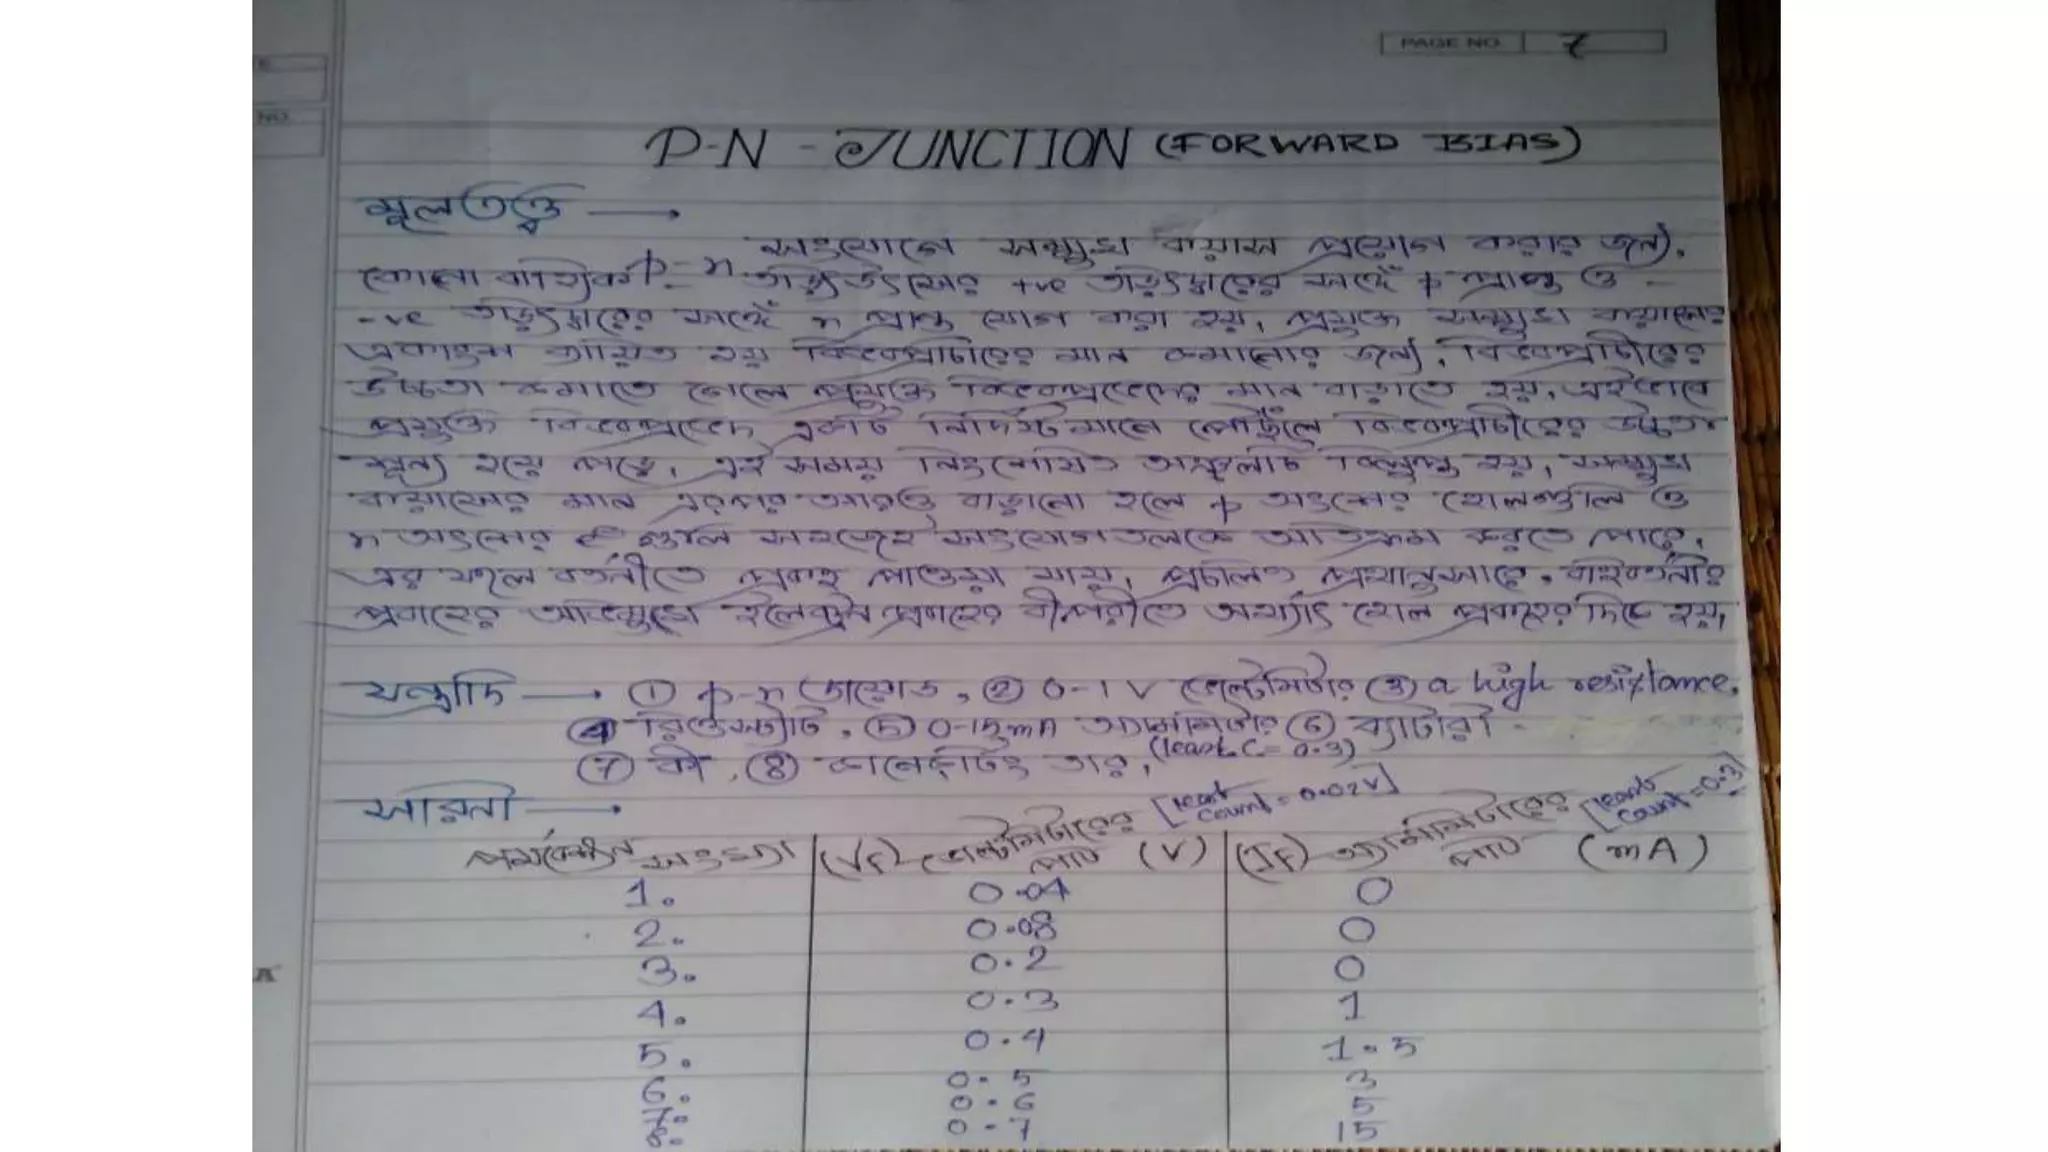 PAGE NO 7
NO.
P-N - JUNCTION (FORWARD BIAS)
মূলতত্ত্ব →
সংযোগে সম্মুখ বায়াস প্রয়োগ করার জন্য
কোনো বাহ্যিক p-n তড়িৎউৎসের +ve তড়িৎদ্বারের সঙ্গে p প্রান্ত ও -
-ve তড়িৎদ্বারের সঙ্গে n প্রান্ত যোগ করা হয়, প্রযুক্ত সম্মুখ বায়াসের
একাংশ ব্যয়িত হয় বিভবপ্রাচীরের মান কমানোর জন্য, বিভবপ্রাচীরের
উচ্চতা কমাতে গেলে প্রযুক্ত বিভবপ্রভেদের মান বাড়াতে হয়, এইভাবে
প্রযুক্ত বিভবপ্রভেদ একটি নির্দিষ্টমানে পৌঁছলে বিভবপ্রাচীরের উচ্চতা
শূন্য হয়ে পড়ে, এই সময় নিঃশোষিত অঞ্চলটি বিলুপ্ত হয়, সম্মুখ
বায়াসের মান এরপর আরও বাড়ানো হলে p অংশের হোলগুলি ও
n অংশের e গুলি সহজেই সংযোগতলকে অতিক্রম করতে পারে,
এর ফলে বর্তনীতে প্রবাহ পাওয়া যায়, প্রচলিত প্রথানুসারে, বহিবর্তনীর
প্রবাহের অভিমুখ ইলেকট্রন প্রবাহের বীপরীতে অর্থ্যাৎ হোল প্রবাহের দিকে হয়,
যন্ত্রাদি → ① p-n ডায়োড, ② 0-1 V ভোল্টমিটার ③ a high resistance,
④ রিওস্ট্যাট, ⑤ 0-15mA অ্যামমিটার ⑥ ব্যাটারী
(least C = 0.3)
⑦ কী, ⑧ কানেক্টিং তার,
সারনী →
[least count = 0.02V] [least count = 0.3]
পর্যবেক্ষন সংখ্যা (Vf) ভোল্টমিটারের পাঠ (V) (If) অ্যামমিটারের পাঠ (mA)
1. 0.04 0
2. 0.08 0
3. 0.2 0
4. 0.3 1
5. 0.4 1.5
6. 0.5 3
7. 0.6 5
8. 0.7 15